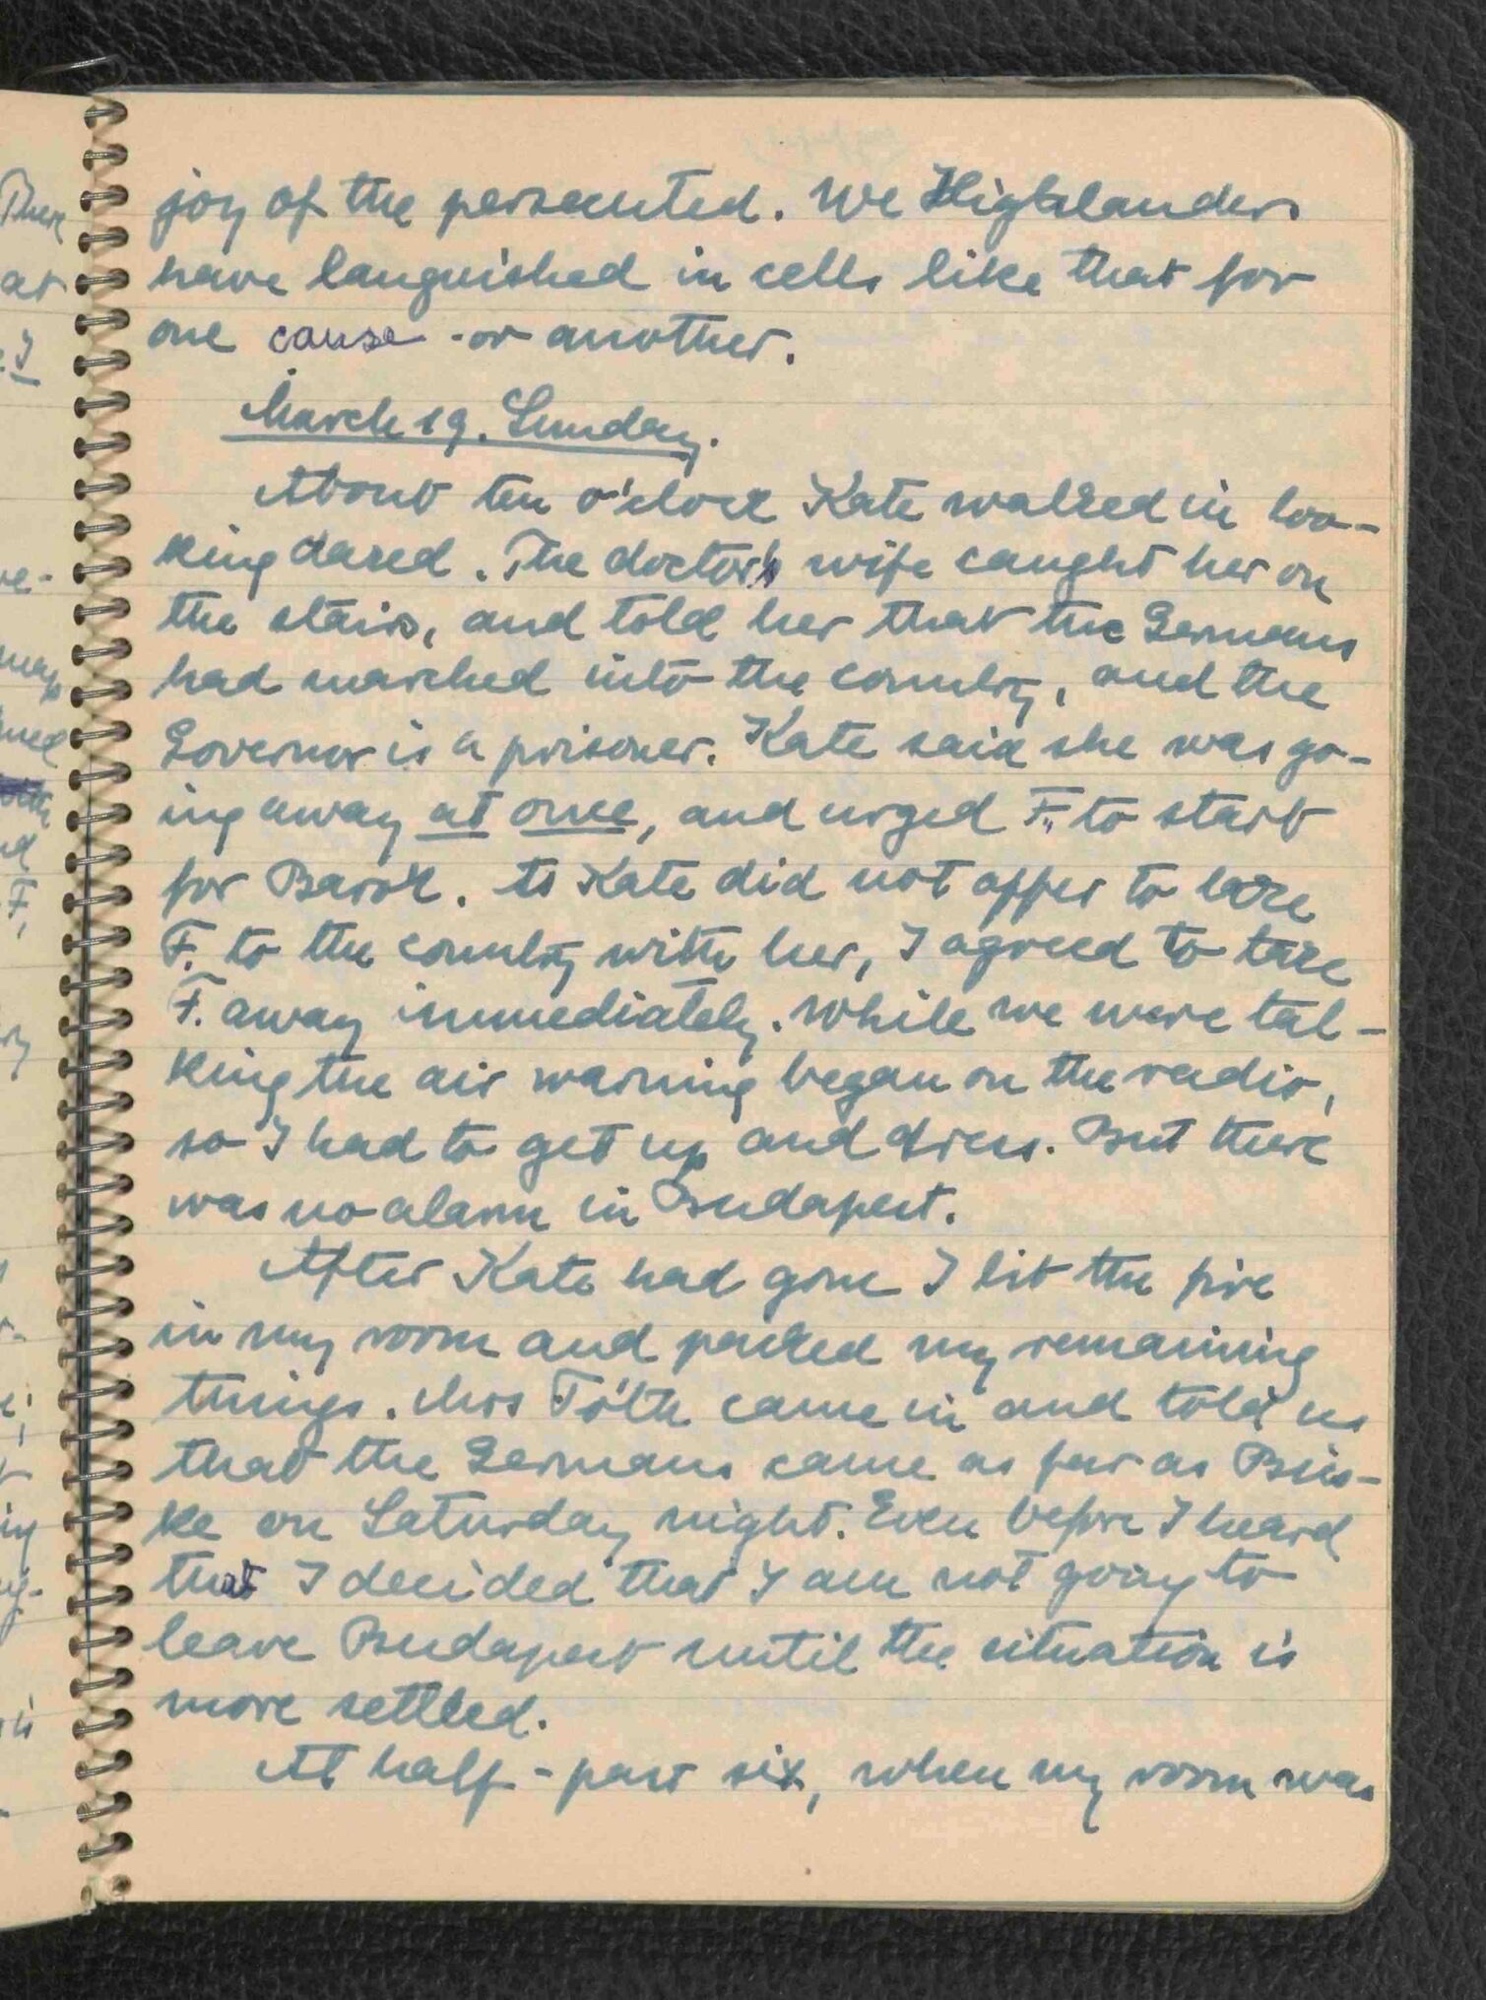 joy of the persecuted. We Highlanders
have languished in cells like that for
one cause or another.
March 19. Sunday.
About ten o'clock Kate walked in loo-
king dazed. The doctor's wife caught her on
the stairs, and told her that the Germans
had marched into the country, and the
Governor is a prisoner. Kate said she was go-
ing away at once, and urged F. to start
for Barót. As Kate did not offer to take
F. to the country with her, I agreed to take
F. away immediately. While we were tal-
king the air warning began on the radio,
so I had to get up and dress. But there
was no alarm in Budapest.
After Kate had gone I lit the fire
in my room and packed my remaining
things. Mrs Tóth came in and told us
that the Germans came as far as Bics-
ke on Saturday night. Even before I heard
that I decided that I am not going to
leave Budapest until the situation is
more settled.
At half-past six, when my room was